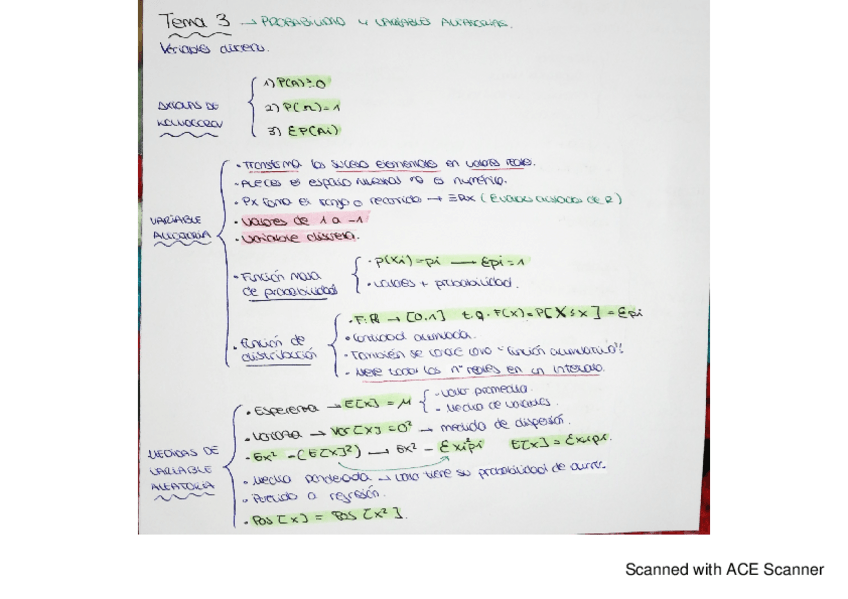 Tema 3 → PROBABILIDAD y VARIABLES ALEATORIAS.
Variables discreta.
AXIOMAS DE KOLMOGOROV
1) P(A)≥0
2) P(Ω)=1
3) ΣP(Ai)
VARIABLE ALEATORIA
• Transforma los sucesos elementales en valores reales.
• A veces el espacio muestral no es numérico.
• Px toma el rango o recorrido → ≡Rx (
• Valores de 1 a -1
• Variable discreta.
• Función masa de probabilidad
• p(xi)=pi — Σpi=1
• valores + probabilidad.
• Función de distribución
• F:R → [0,1] t.q. F(x)=P[X≤x] = Σpi
• Cantidad acumulada.
• También se conoce como "función acumulativa".
• Mete todos los nº reales en un intervalo.
MEDIDAS DE VARIABLE ALEATORIA
• Esperanza → E[x] = μ
- Valor promedio.
- Media de valores.
• Varianza → Var[x]=σ² → medida de dispersión.
• Ex² -(E[x]²) → Ex² - Σxi²pi E[x]=Σxipi.
• Media ponderada → valor tiene su probabilidad de ocurrir.
• Parecido a regresión.
• Pas[x] = Pas[x²].
Scanned with ACE Scanner